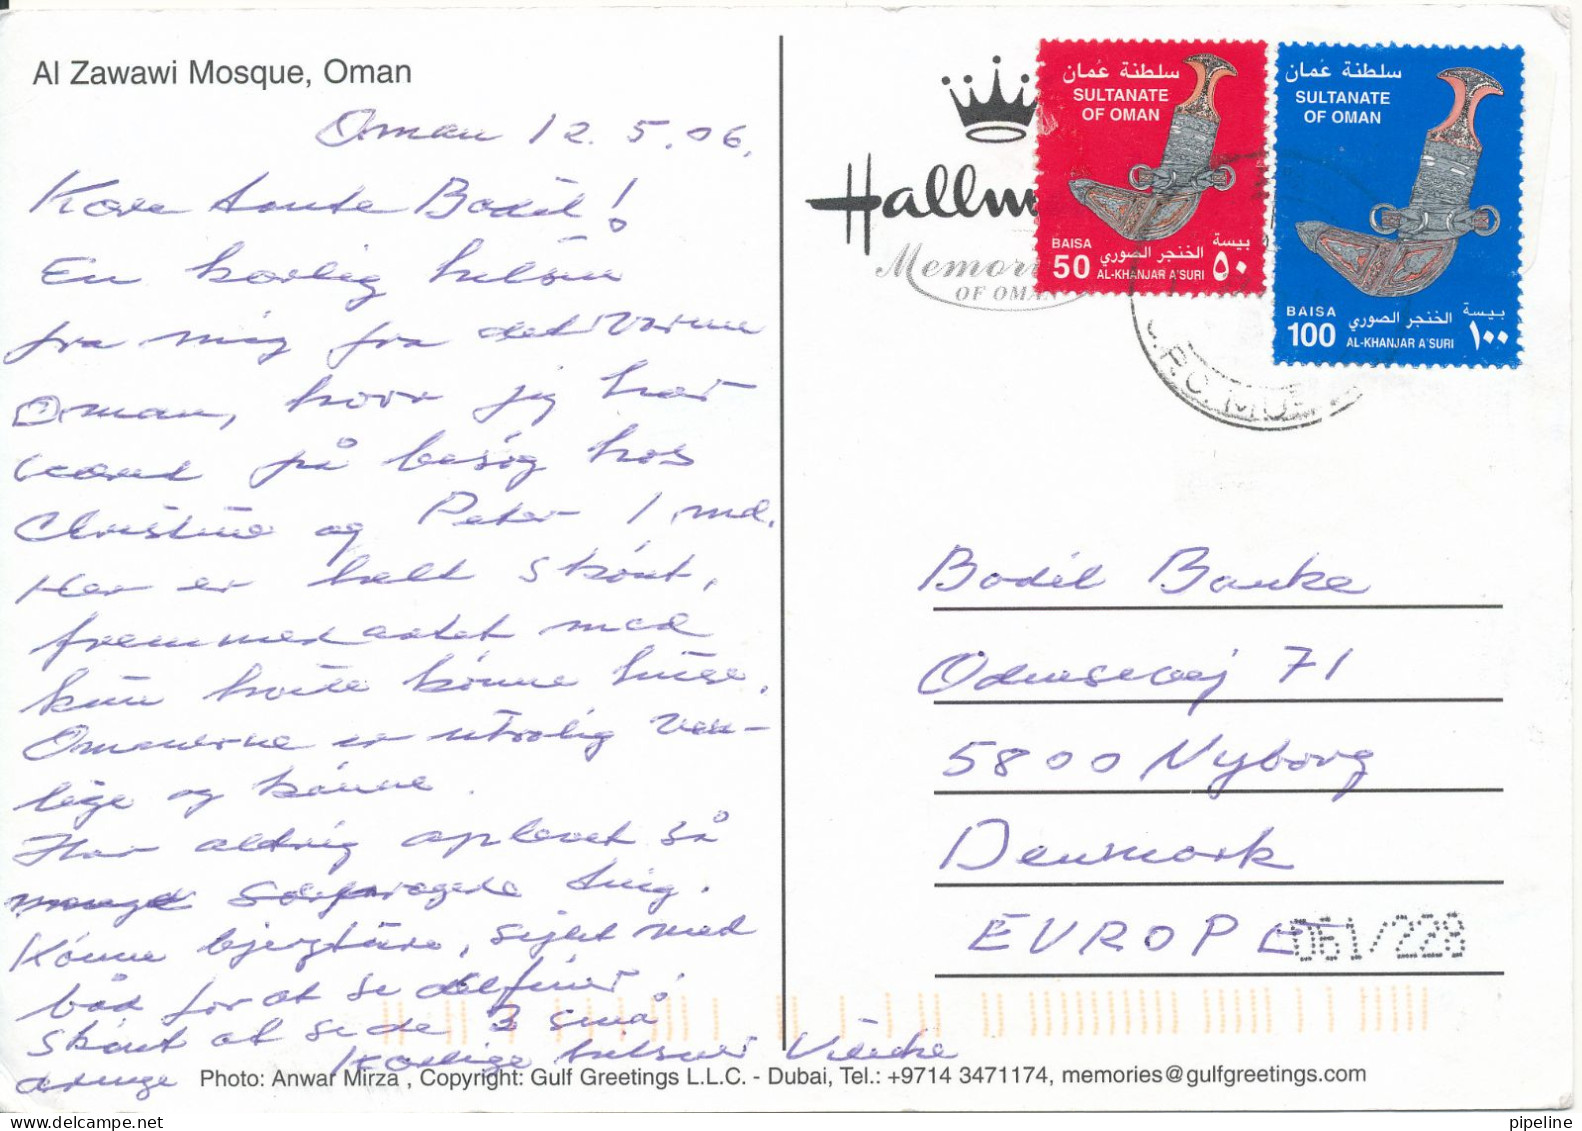 Al Zawawi Mosque, Oman
Oman 12.5.06.
Kære tante Bodil!
En kærlig hilsen
fra mig fra det varme
Oman, hvor jeg har
været på besøg hos
Christine og Peter 1 md.
Her er helt skønt,
fremmedartet med
kun hvide kønne huse.
Omanerne er utrolig ven-
lige og kønne.
Har aldrig oplevet så
mange særprægede ting.
Kønne bjergture, sejlet med
båd for at se delfiner,
skønt at se de 3 små
drenge
Kærlige hilsner Vibeke
Hallm
Memori
OF OMAN
سلطنة عُمان
SULTANATE
OF OMAN
BAISA بيسة
50 الخنجر الصوري ٥٠
AL-KHANJAR A'SURI
سلطنة عُمان
SULTANATE
OF OMAN
BAISA بيسة
100 الخنجر الصوري ١٠٠
AL-KHANJAR A'SURI
Bodil Banke
Odensevej 71
5800 Nyborg
Denmark
EUROPE
061/228
Photo: Anwar Mirza , Copyright: Gulf Greetings L.L.C. - Dubai, Tel.: +9714 3471174, memories@gulfgreetings.com
pipeline